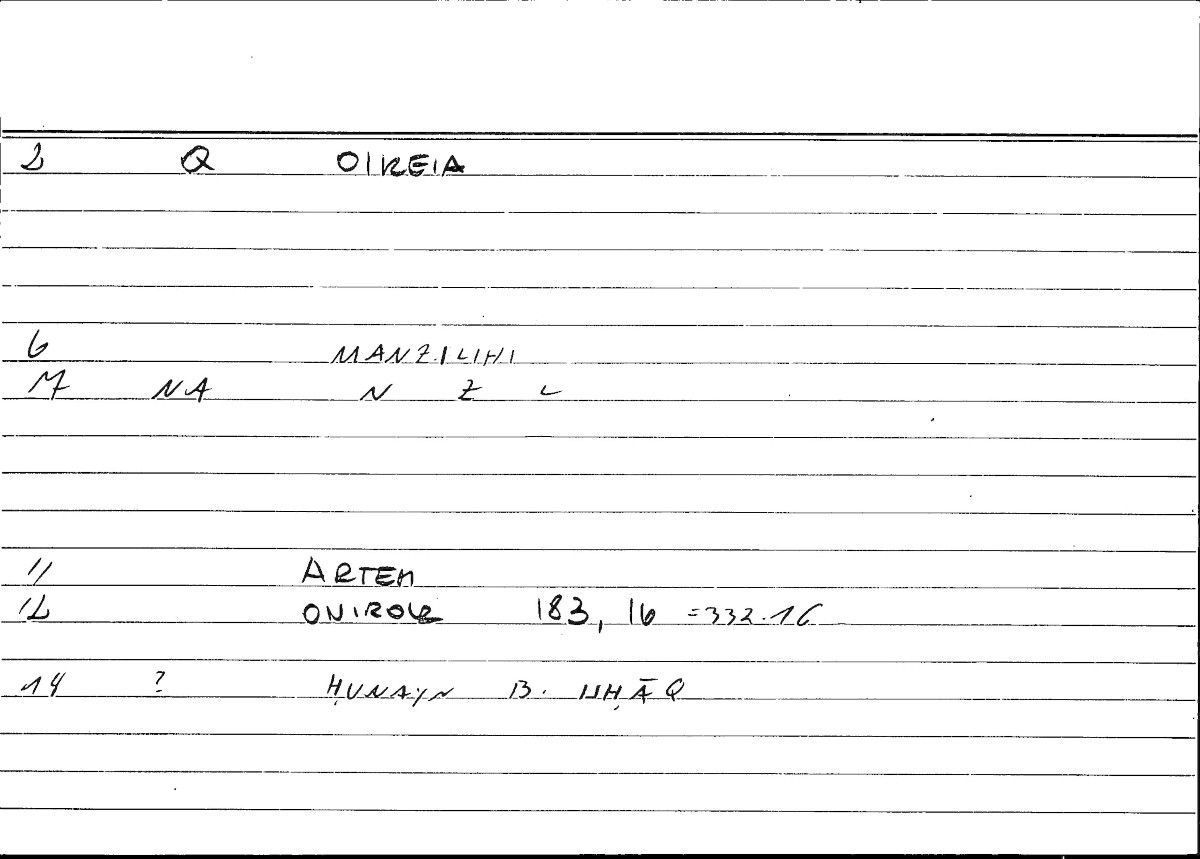 2 Q OIKEIA
6 MANZILIHI
7 NA N Z L
11 ARTEM
12 ONIROK 183, 16 =332.16
14 ? ḤUNAYN B. ISḤĀQ